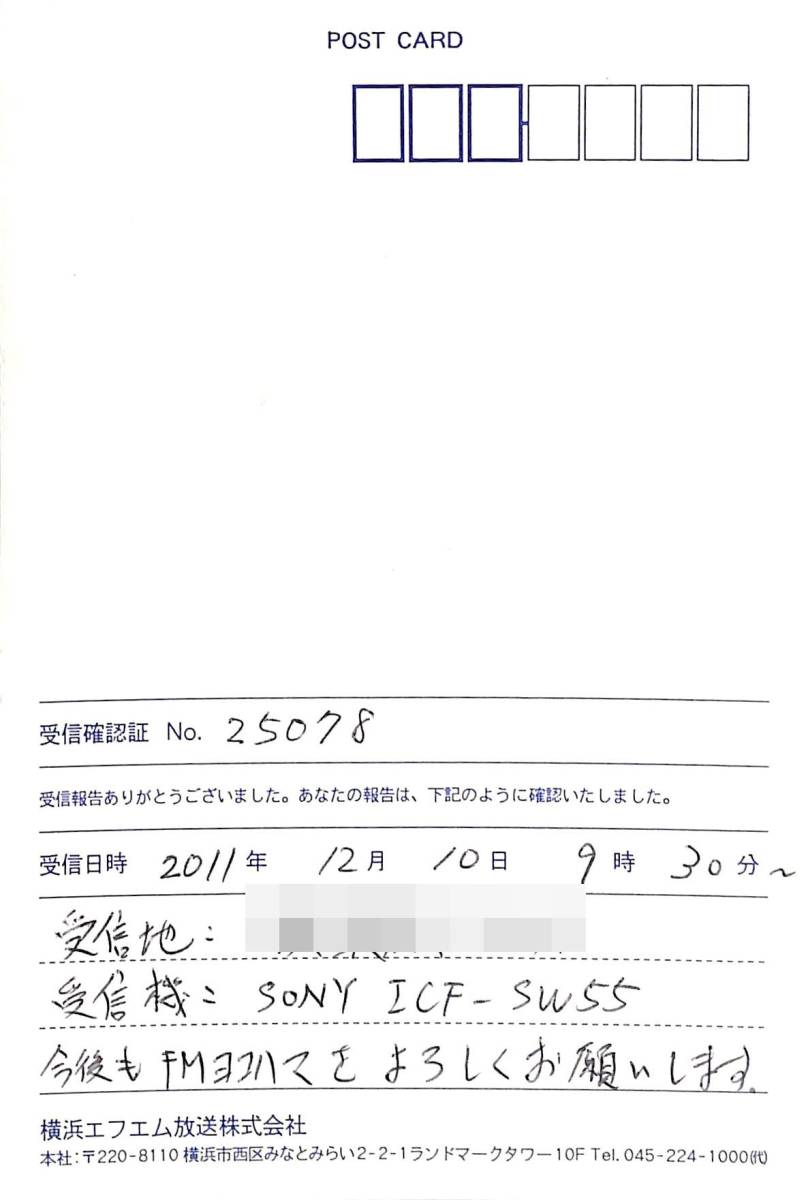 POST CARD
受信確認証 No. 25078
受信報告ありがとうございました。あなたの報告は、下記のように確認いたしました。
受信日時 2011年 12月 10日 9時 30分~
受信地:
受信機: SONY ICF-SW55
今後もFMヨコハマをよろしくお願いします。
横浜エフエム放送株式会社
本社:〒220-8110 横浜市西区みなとみらい2-2-1ランドマークタワー10F Tel. 045-224-1000(代)